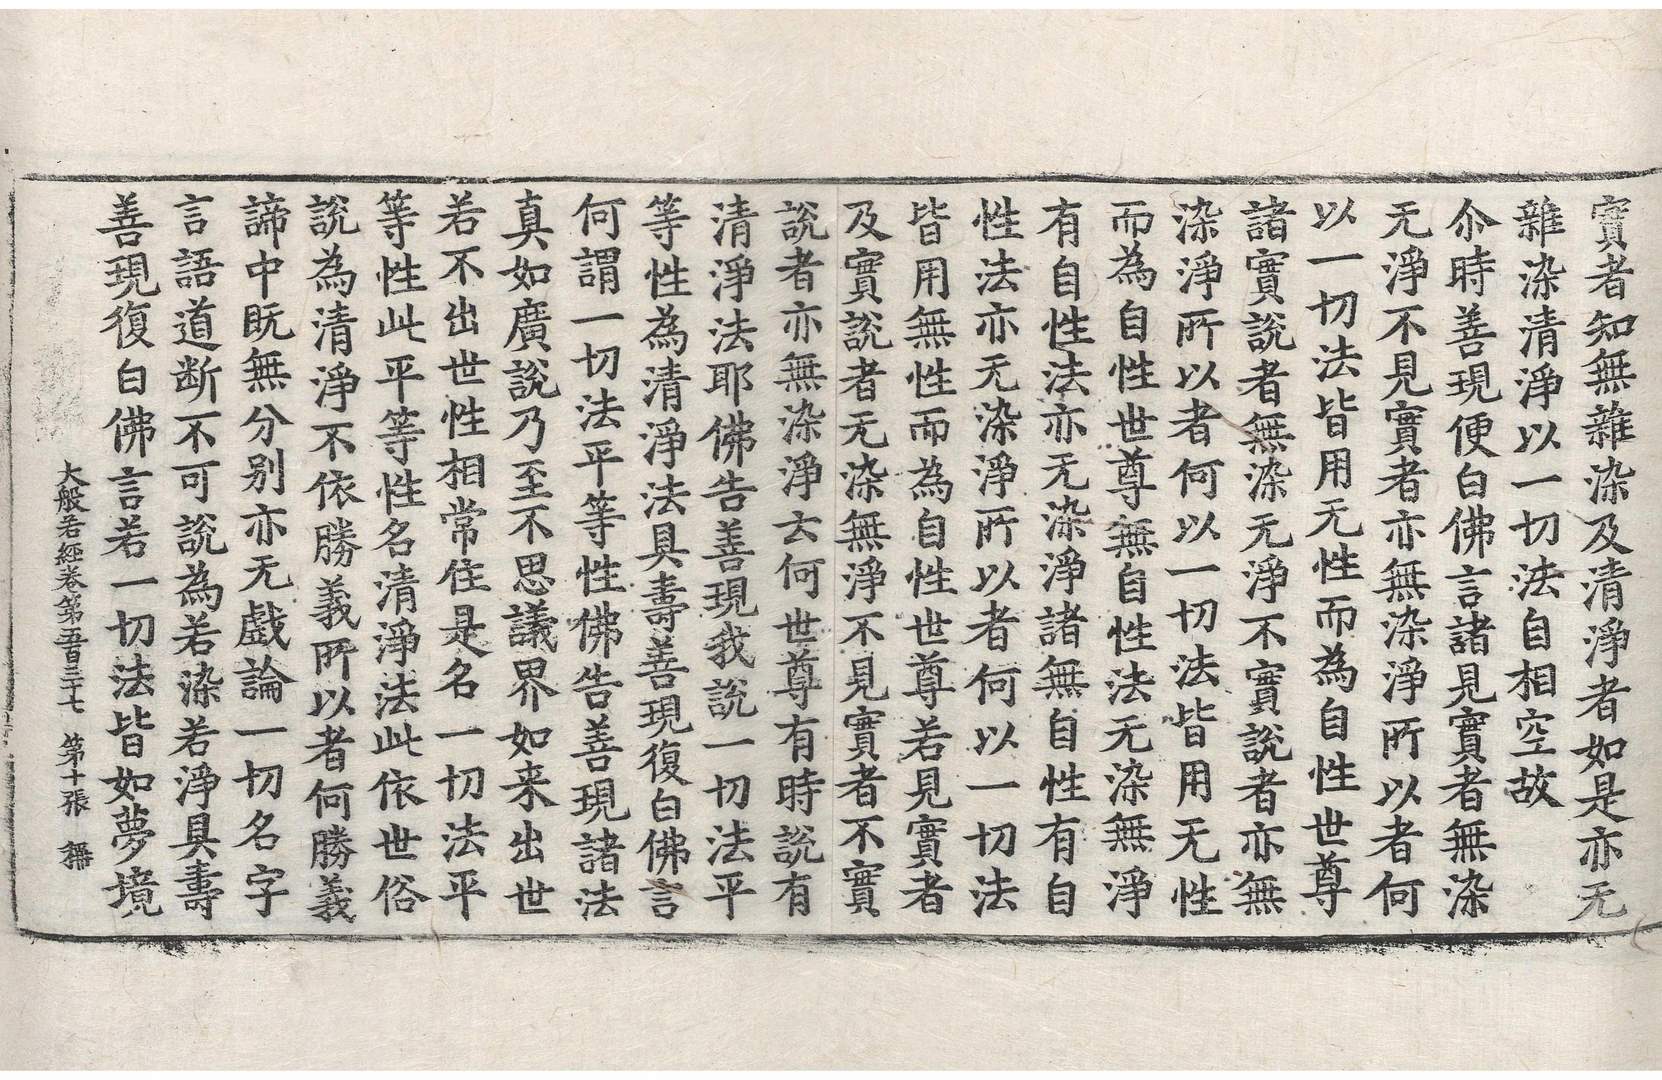 實者知無雜染及清淨者如是亦无
雜染清淨以一切法自相空故
尒時善現便白佛言諸見實者無染
无淨不見實者亦無染淨所以者何
以一切法皆用无性而為自性世尊
諸實說者無染无淨不實說者亦無
染淨所以者何以一切法皆用无性
而為自性世尊無自性法无染無淨
有自性法亦无染淨諸無自性有自
性法亦无染淨所以者何以一切法
皆用無性而為自性世尊若見實者
及實說者无染無淨不見實者不實
說者亦無染淨云何世尊有時說有
清淨法耶佛告善現我說一切法平
等性為清淨法具壽善現復白佛言
何謂一切法平等性佛告善現諸法
真如廣說乃至不思議界如来出世
若不出世性相常住是名一切法平
等性此平等性名清淨法此依世俗
說為清淨不依勝義所以者何勝義
諦中既無分别亦无戲論一切名字
言語道断不可說為若染若淨具壽
善現復白佛言若一切法皆如夢境
大般若經卷第五百三十七 第十張